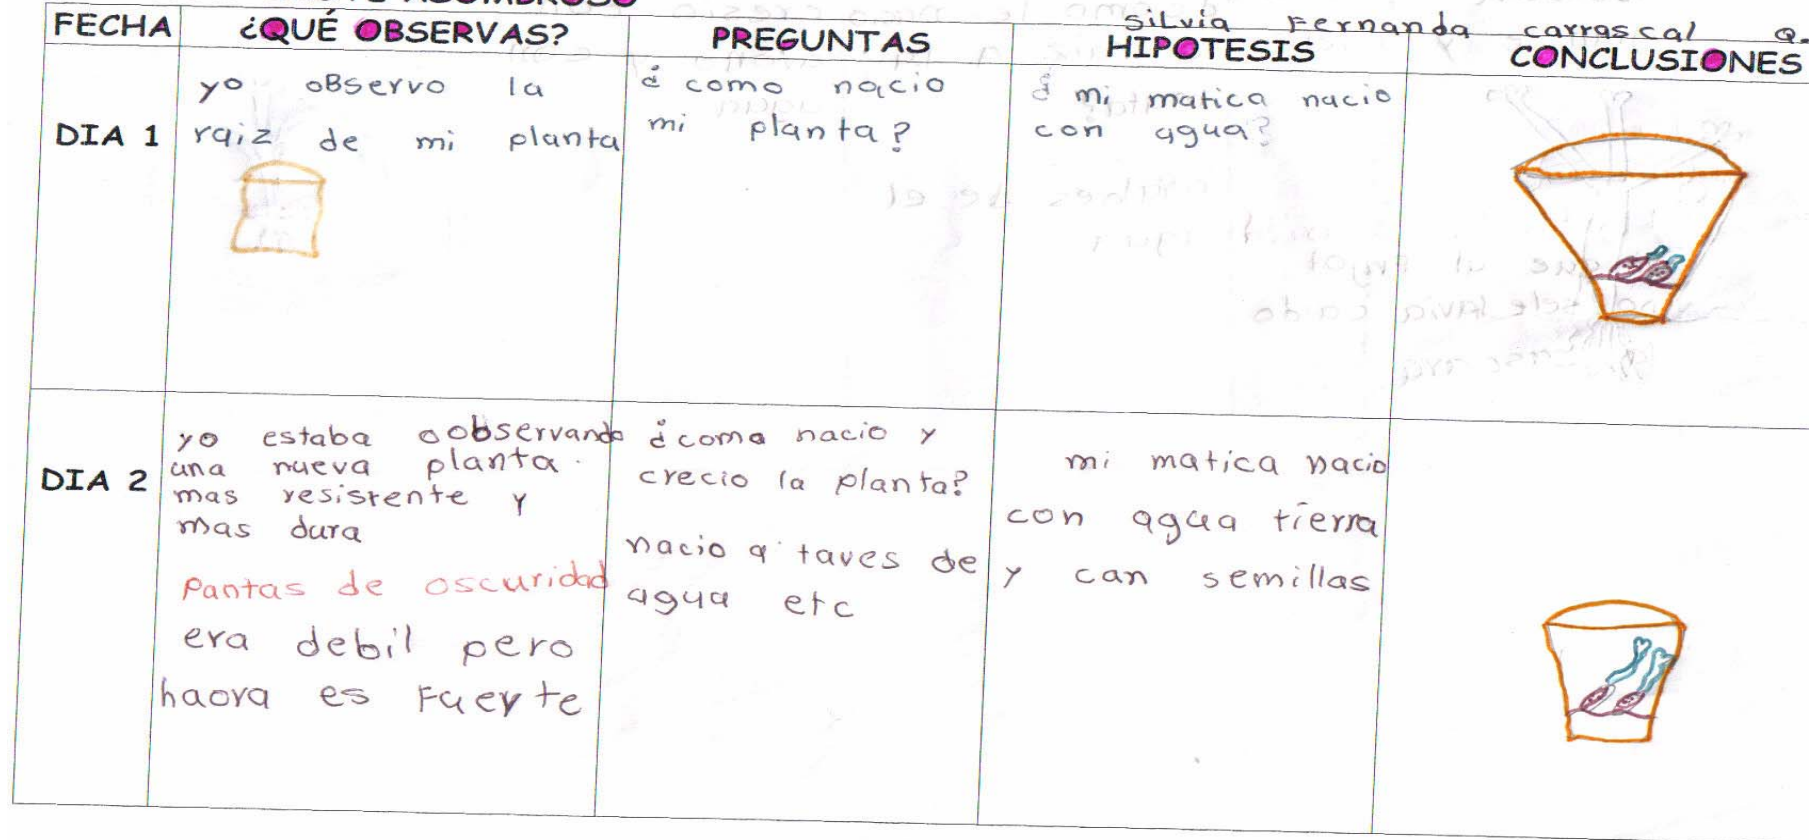 silvia Fernanda carrascal Q.
FECHA
¿QUÉ OBSERVAS?
PREGUNTAS
HIPOTESIS
CONCLUSIONES
DIA 1
yo oBservo la
raiz de mi planta
¿ como nacio
mi planta?
¿ mi matica nacio
con agua?
DIA 2
yo estaba oobservando
una nueva planta.
mas resistente y
mas dura
Pantas de oscuridad
era debil pero
haora es Fuerte
¿como nacio y
crecio la planta?
nacio a taves de
agua etc
mi matica nacio
con agua tierra
y can semillas